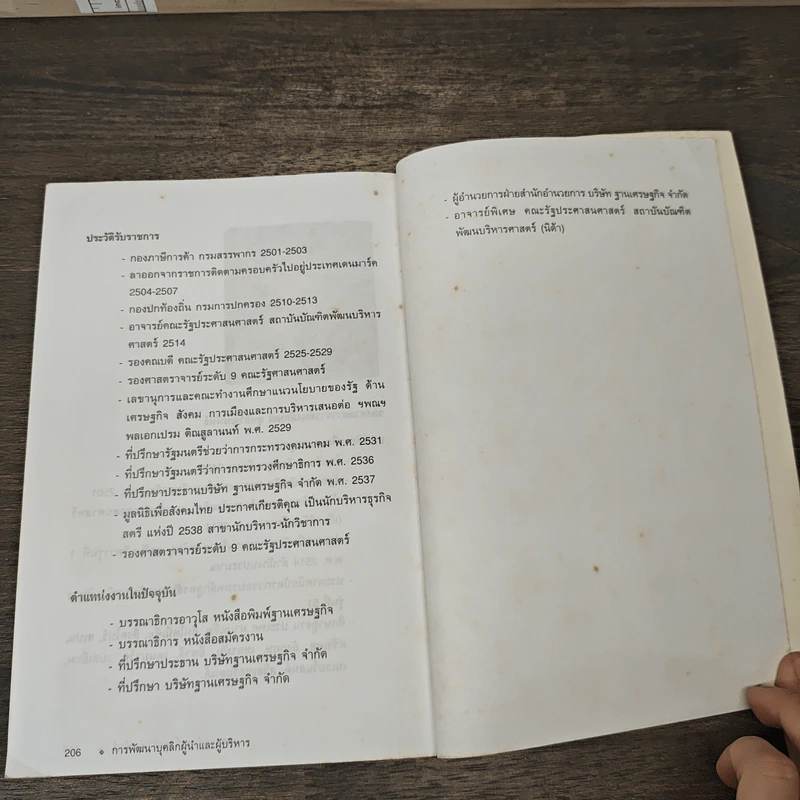 ประวัติรับราชการ
- กองภาษีการค้า กรมสรรพากร 2501-2503
- ลาออกจากราชการติดตามครอบครัวไปอยู่ประเทศเดนมาร์ค
2504-2507
- กองปกท้องถิ่น กรมการปกครอง 2510-2513
- อาจารย์คณะรัฐประศาสนศาสตร์ สถาบันบัณฑิตพัฒนบริหาร
ศาสตร์ 2514
- รองคณบดี คณะรัฐประศาสนศาสตร์ 2525-2529
- รองศาสตราจารย์ระดับ 9 คณะรัฐศาสนศาสตร์
- เลขานุการและคณะทำงานศึกษาแนวนโยบายของรัฐ ด้าน
เศรษฐกิจ สังคม การเมืองและการบริหารเสนอต่อ ฯพณฯ
พลเอกเปรม ติณสูลานนท์ พ.ศ. 2529
- ที่ปรึกษารัฐมนตรีช่วยว่าการกระทรวงคมนาคม พ.ศ. 2531
- ที่ปรึกษารัฐมนตรีว่าการกระทรวงศึกษาธิการ พ.ศ. 2536
- ที่ปรึกษาประธานบริษัท ฐานเศรษฐกิจ จำกัด พ.ศ. 2537
- มูลนิธิเพื่อสังคมไทย ประกาศเกียรติคุณ เป็นนักบริหารธุรกิจ
สตรี แห่งปี 2538 สาขานักบริหาร-นักวิชาการ
- รองศาสตราจารย์ระดับ 9 คณะรัฐประศาสนศาสตร์
ตำแหน่งงานในปัจจุบัน
- บรรณาธิการอาวุโส หนังสือพิมพ์ฐานเศรษฐกิจ
- บรรณาธิการ หนังสือสมัครงาน
- ที่ปรึกษาประธาน บริษัทฐานเศรษฐกิจ จำกัด
- ที่ปรึกษา บริษัทฐานเศรษฐกิจ จำกัด
206 ❖ การพัฒนาบุคลิกผู้นำและผู้บริหาร
- ผู้อำนวยการฝ่ายสำนักอำนวยการ บริษัท ฐานเศรษฐกิจ จำกัด
- อาจารย์พิเศษ คณะรัฐประศาสนศาสตร์ สถาบันบัณฑิต
พัฒนบริหารศาสตร์ (นิด้า)